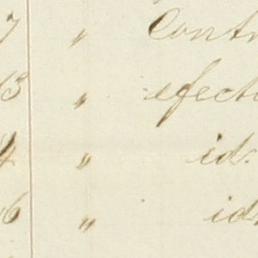 7 " Contr
13 " efecti
4 " id.
16 " id.